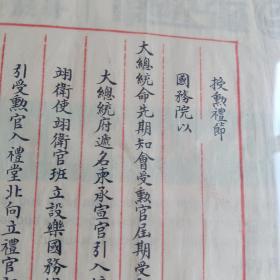 授勲禮節
國務院以
大總統命先期知會受勲官屆期受
大總統府遞名柬承宣官引入
翊衛使翊衛官班立設樂國務
引受勲官入禮堂北向立禮官